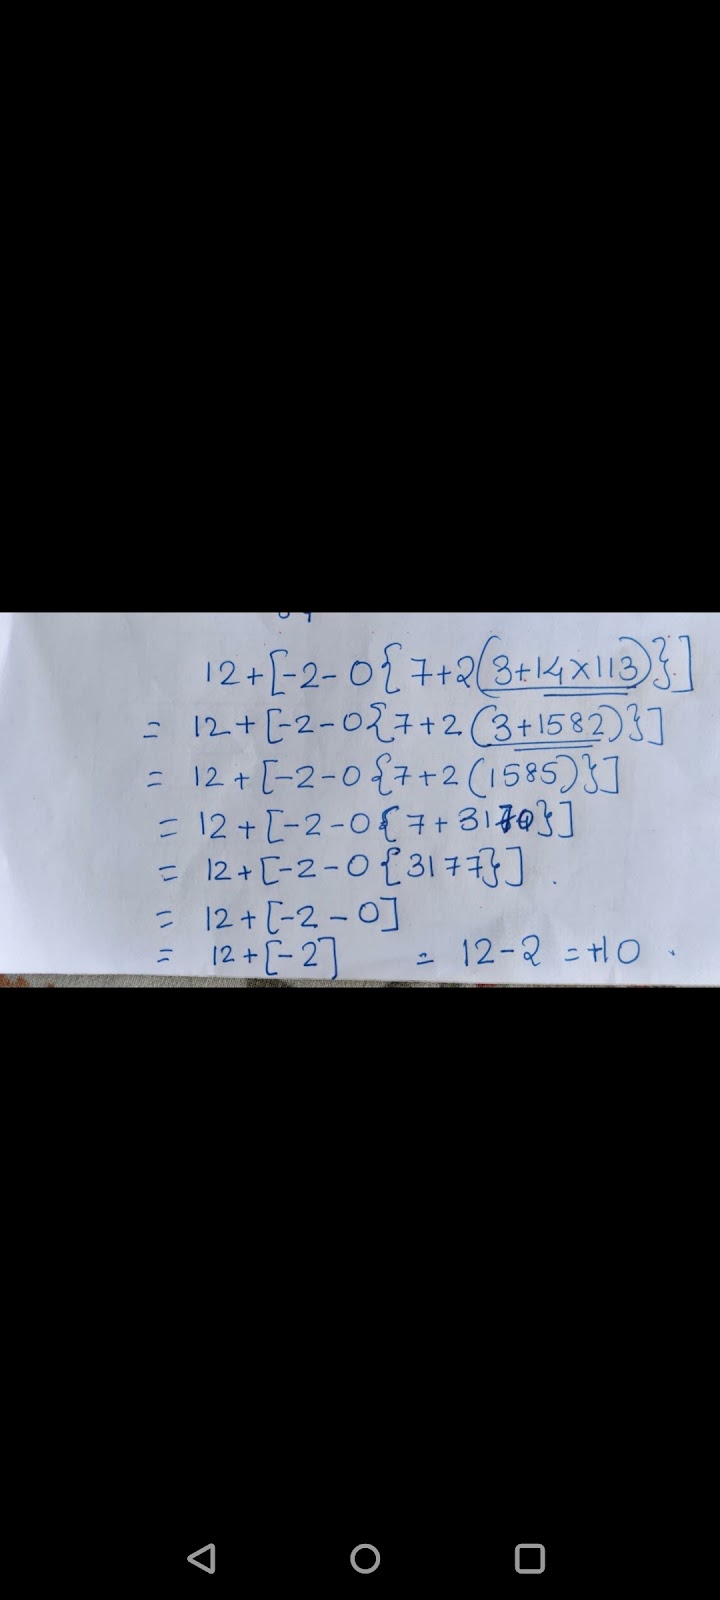 12+[-2-0{7+2(3+14×113)}]
= 12+[-2-0{7+2(3+1582)}]
= 12+[-2-0{7+2(1585)}]
= 12+[-2-0{7+3170}]
= 12+[-2-0{3177}].
= 12+[-2-0]
= 12+[-2] = 12-2 = +10.